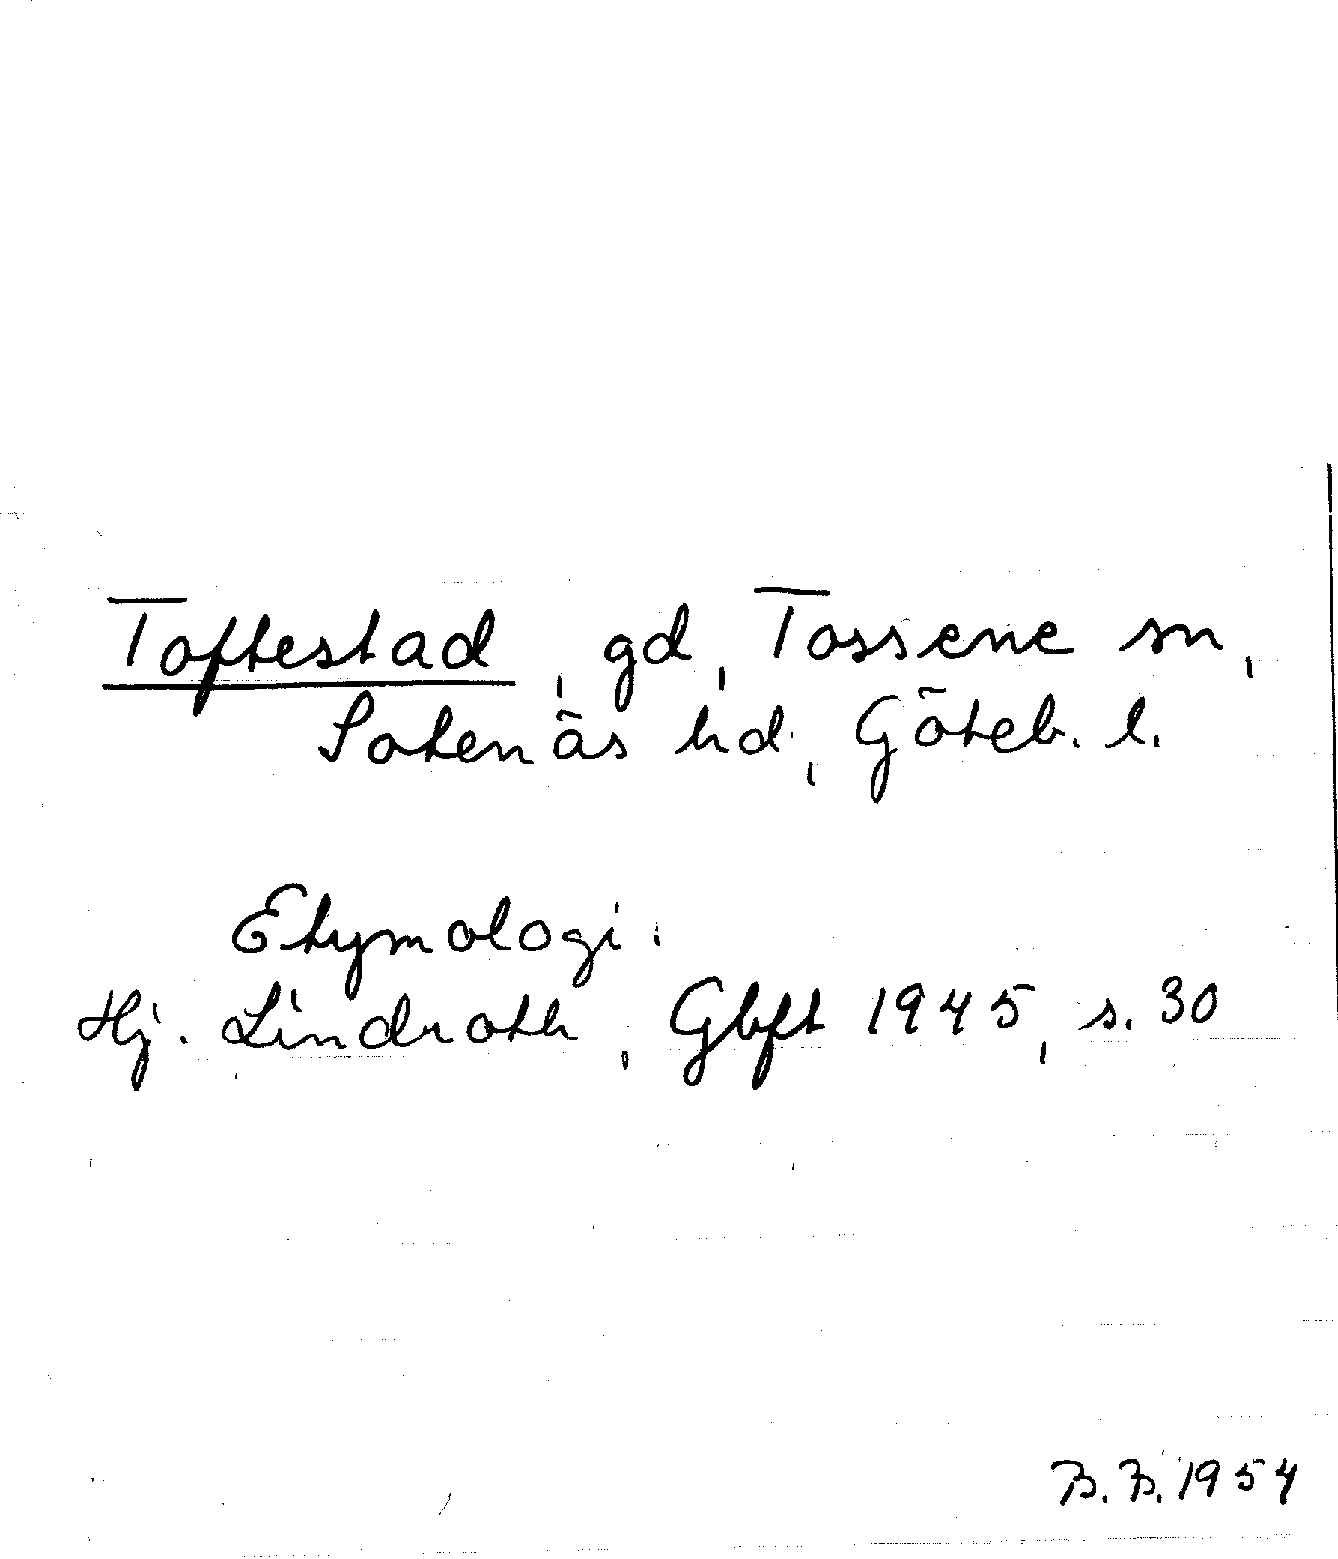 Toftestad, gd, Tossene sn,
Sotenäs hd, Göteb. l.
Etymologi.
Hj. Lindroth, Gbft 1945, s. 30
B. B. 1954